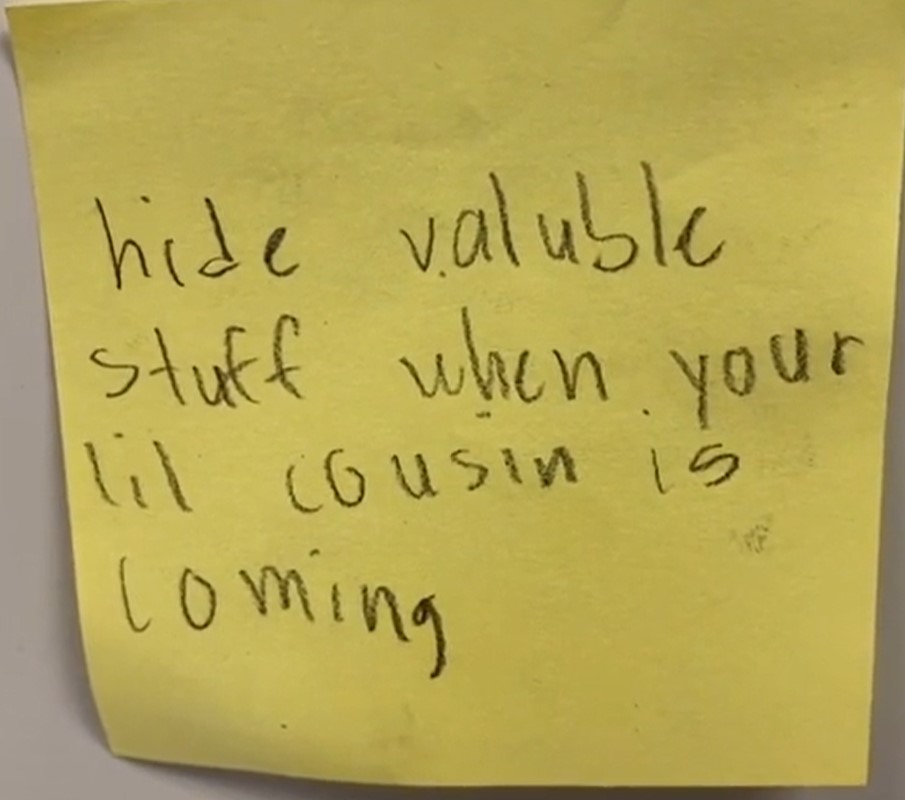 hide valuble
stuff when your
lil cousin is
coming